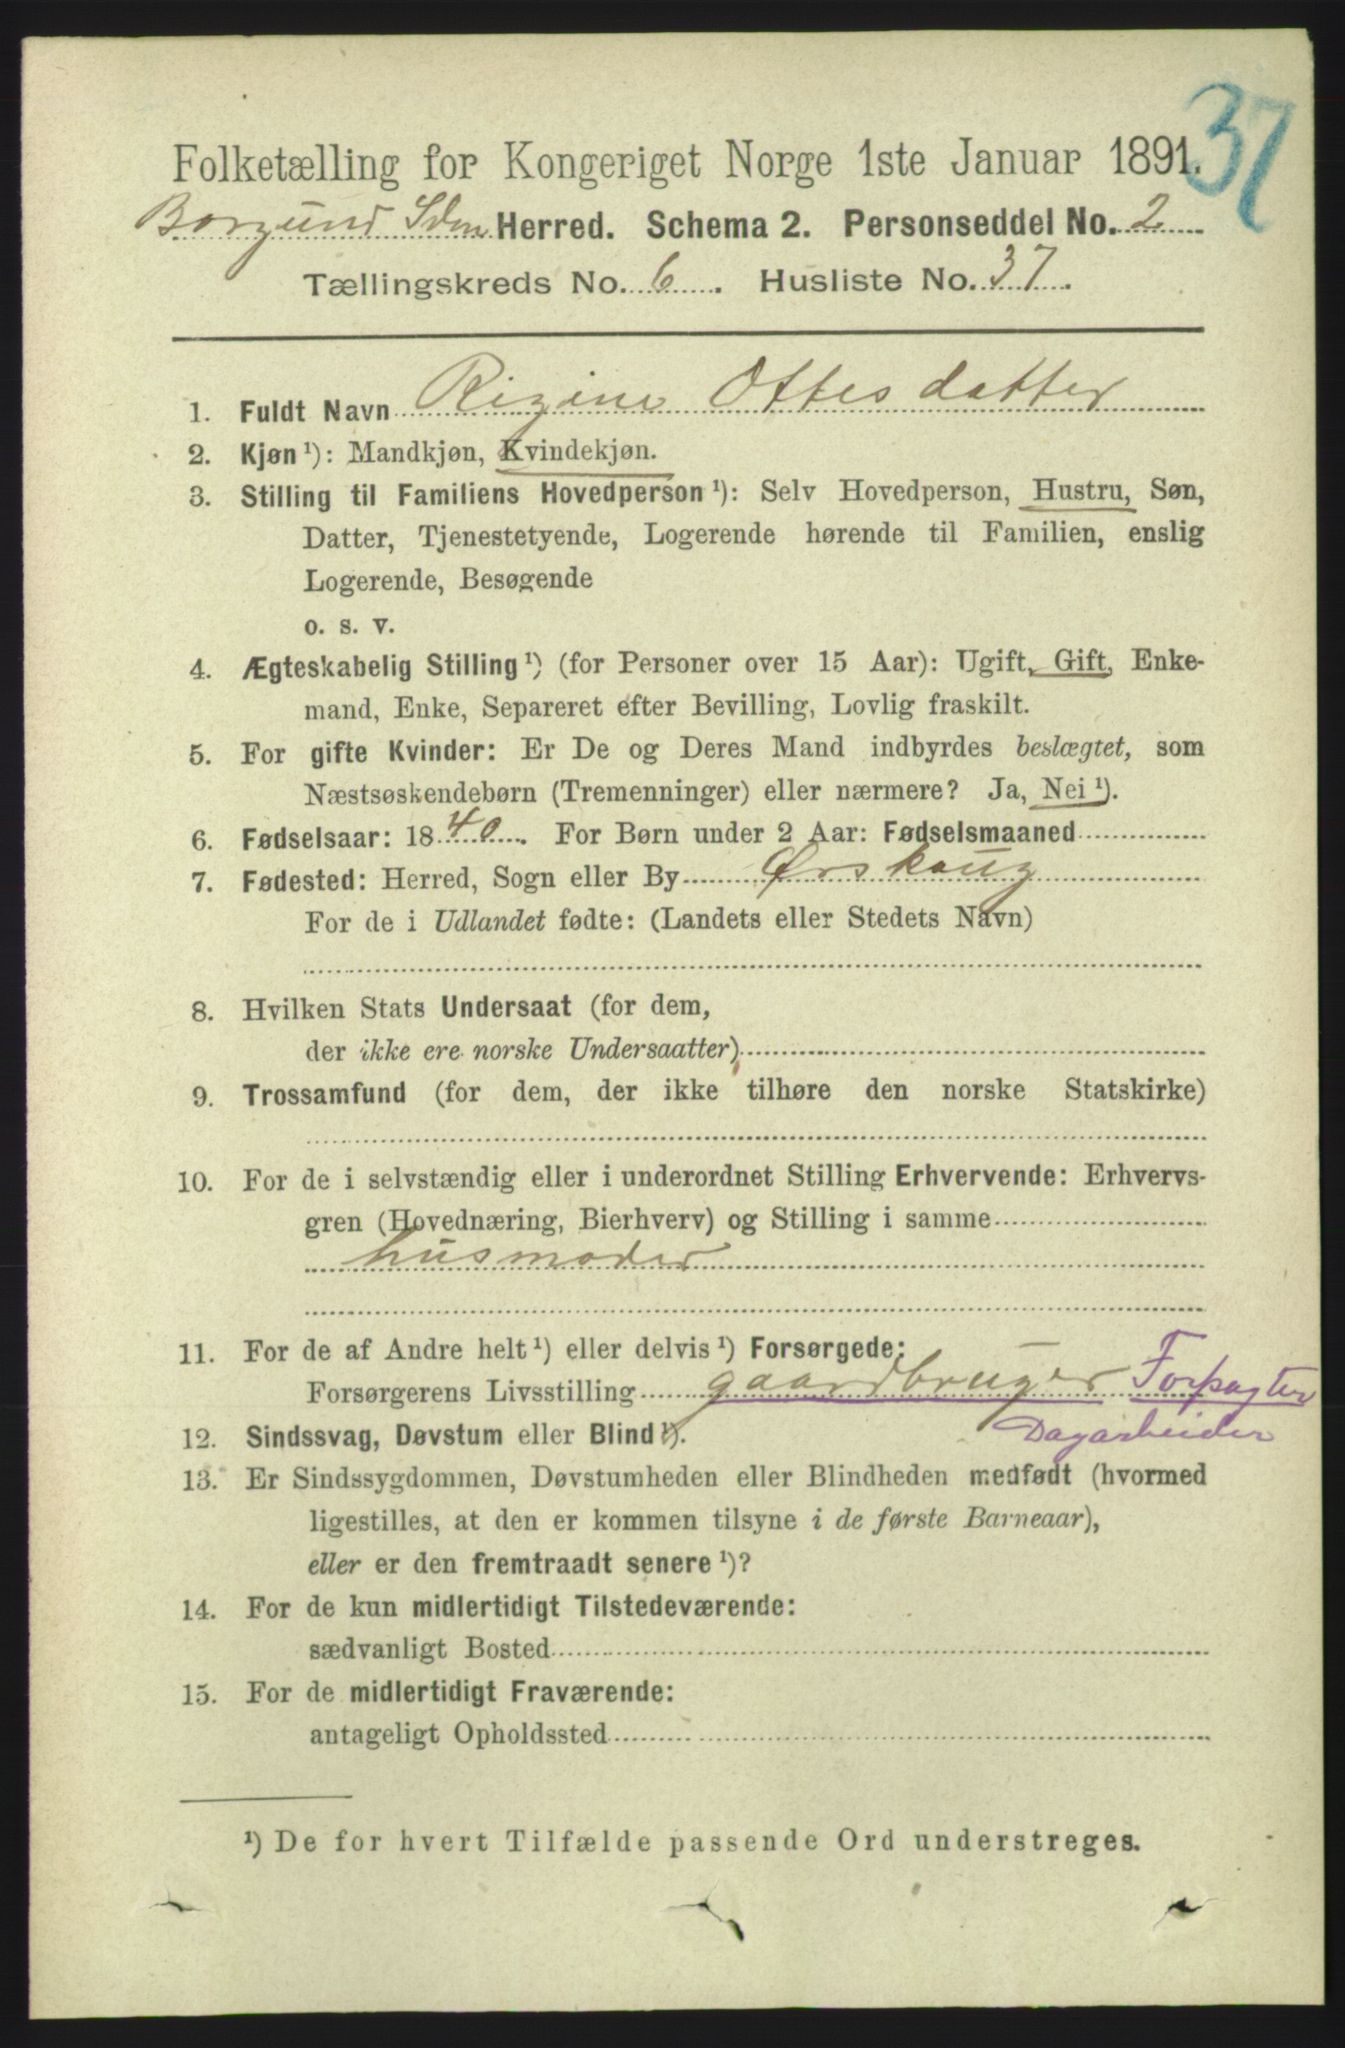 37
Folketælling for Kongeriget Norge 1ste Januar 1891.
Borgund Herred. Schema 2. Personseddel No. 2
Tællingskreds No. 6. Husliste No. 37.
1. Fuldt Navn Rigine Ottesdatter
2. Kjøn ¹): Mandkjøn, Kvindekjøn.
3. Stilling til Familiens Hovedperson ¹): Selv Hovedperson, Hustru, Søn,
Datter, Tjenestetyende, Logerende hørende til Familien, enslig
Logerende, Besøgende
o. s. v.
4. Ægteskabelig Stilling ¹) (for Personer over 15 Aar): Ugift, Gift, Enke-
mand, Enke, Separeret efter Bevilling, Lovlig fraskilt.
5. For gifte Kvinder: Er De og Deres Mand indbyrdes beslægtet, som
Næstsøskendebørn (Tremenninger) eller nærmere? Ja, Nei ¹).
6. Fødselsaar: 1840. For Børn under 2 Aar: Fødselsmaaned
7. Fødested: Herred, Sogn eller By Ørskoug
For de i Udlandet fødte: (Landets eller Stedets Navn)
8. Hvilken Stats Undersaat (for dem,
der ikke ere norske Undersaatter)
9. Trossamfund (for dem, der ikke tilhøre den norske Statskirke)
10. For de i selvstændig eller i underordnet Stilling Erhvervende: Erhvervs-
gren (Hovednæring, Bierhverv) og Stilling i samme
husmoder
11. For de af Andre helt ¹) eller delvis ¹) Forsørgede:
Forsørgerens Livsstilling gaardbruger Forpagter
Dagarbeider
12. Sindssvag, Døvstum eller Blind ¹).
13. Er Sindssygdommen, Døvstumheden eller Blindheden medfødt (hvormed
ligestilles, at den er kommen tilsyne i de første Barneaar),
eller er den fremtraadt senere ¹)?
14. For de kun midlertidigt Tilstedeværende:
sædvanligt Bosted
15. For de midlertidigt Fraværende:
antageligt Opholdssted
¹) De for hvert Tilfælde passende Ord understreges.